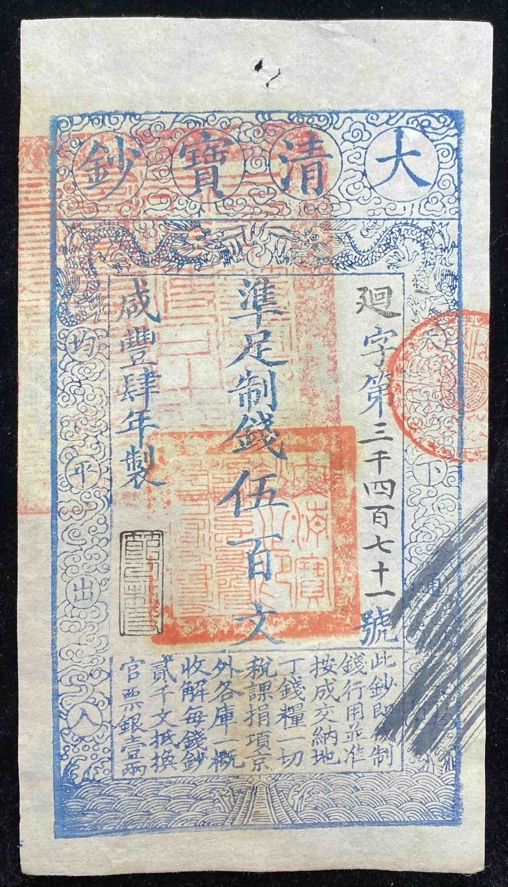 大清寶鈔
天下通行
均平出入
廻字第三千四百七十一號
準足制錢伍百文
咸豐肆年製
此鈔即代制
錢行用並准
按成交納地
丁錢糧一切
稅課捐項京
外各庫一概
收解每錢鈔
貳千文抵換
官票銀壹兩